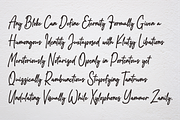 Any Bloke Can Define Eternity Formally Given a
Humongous Identity Juxtaposed with Klutzy Libations
Meritoriously Notarised Openly in Portentous yet
Quizzically Rambunctious Stupefying Tantrums
Undulating Visually While Xylophones Yammer Zanily.